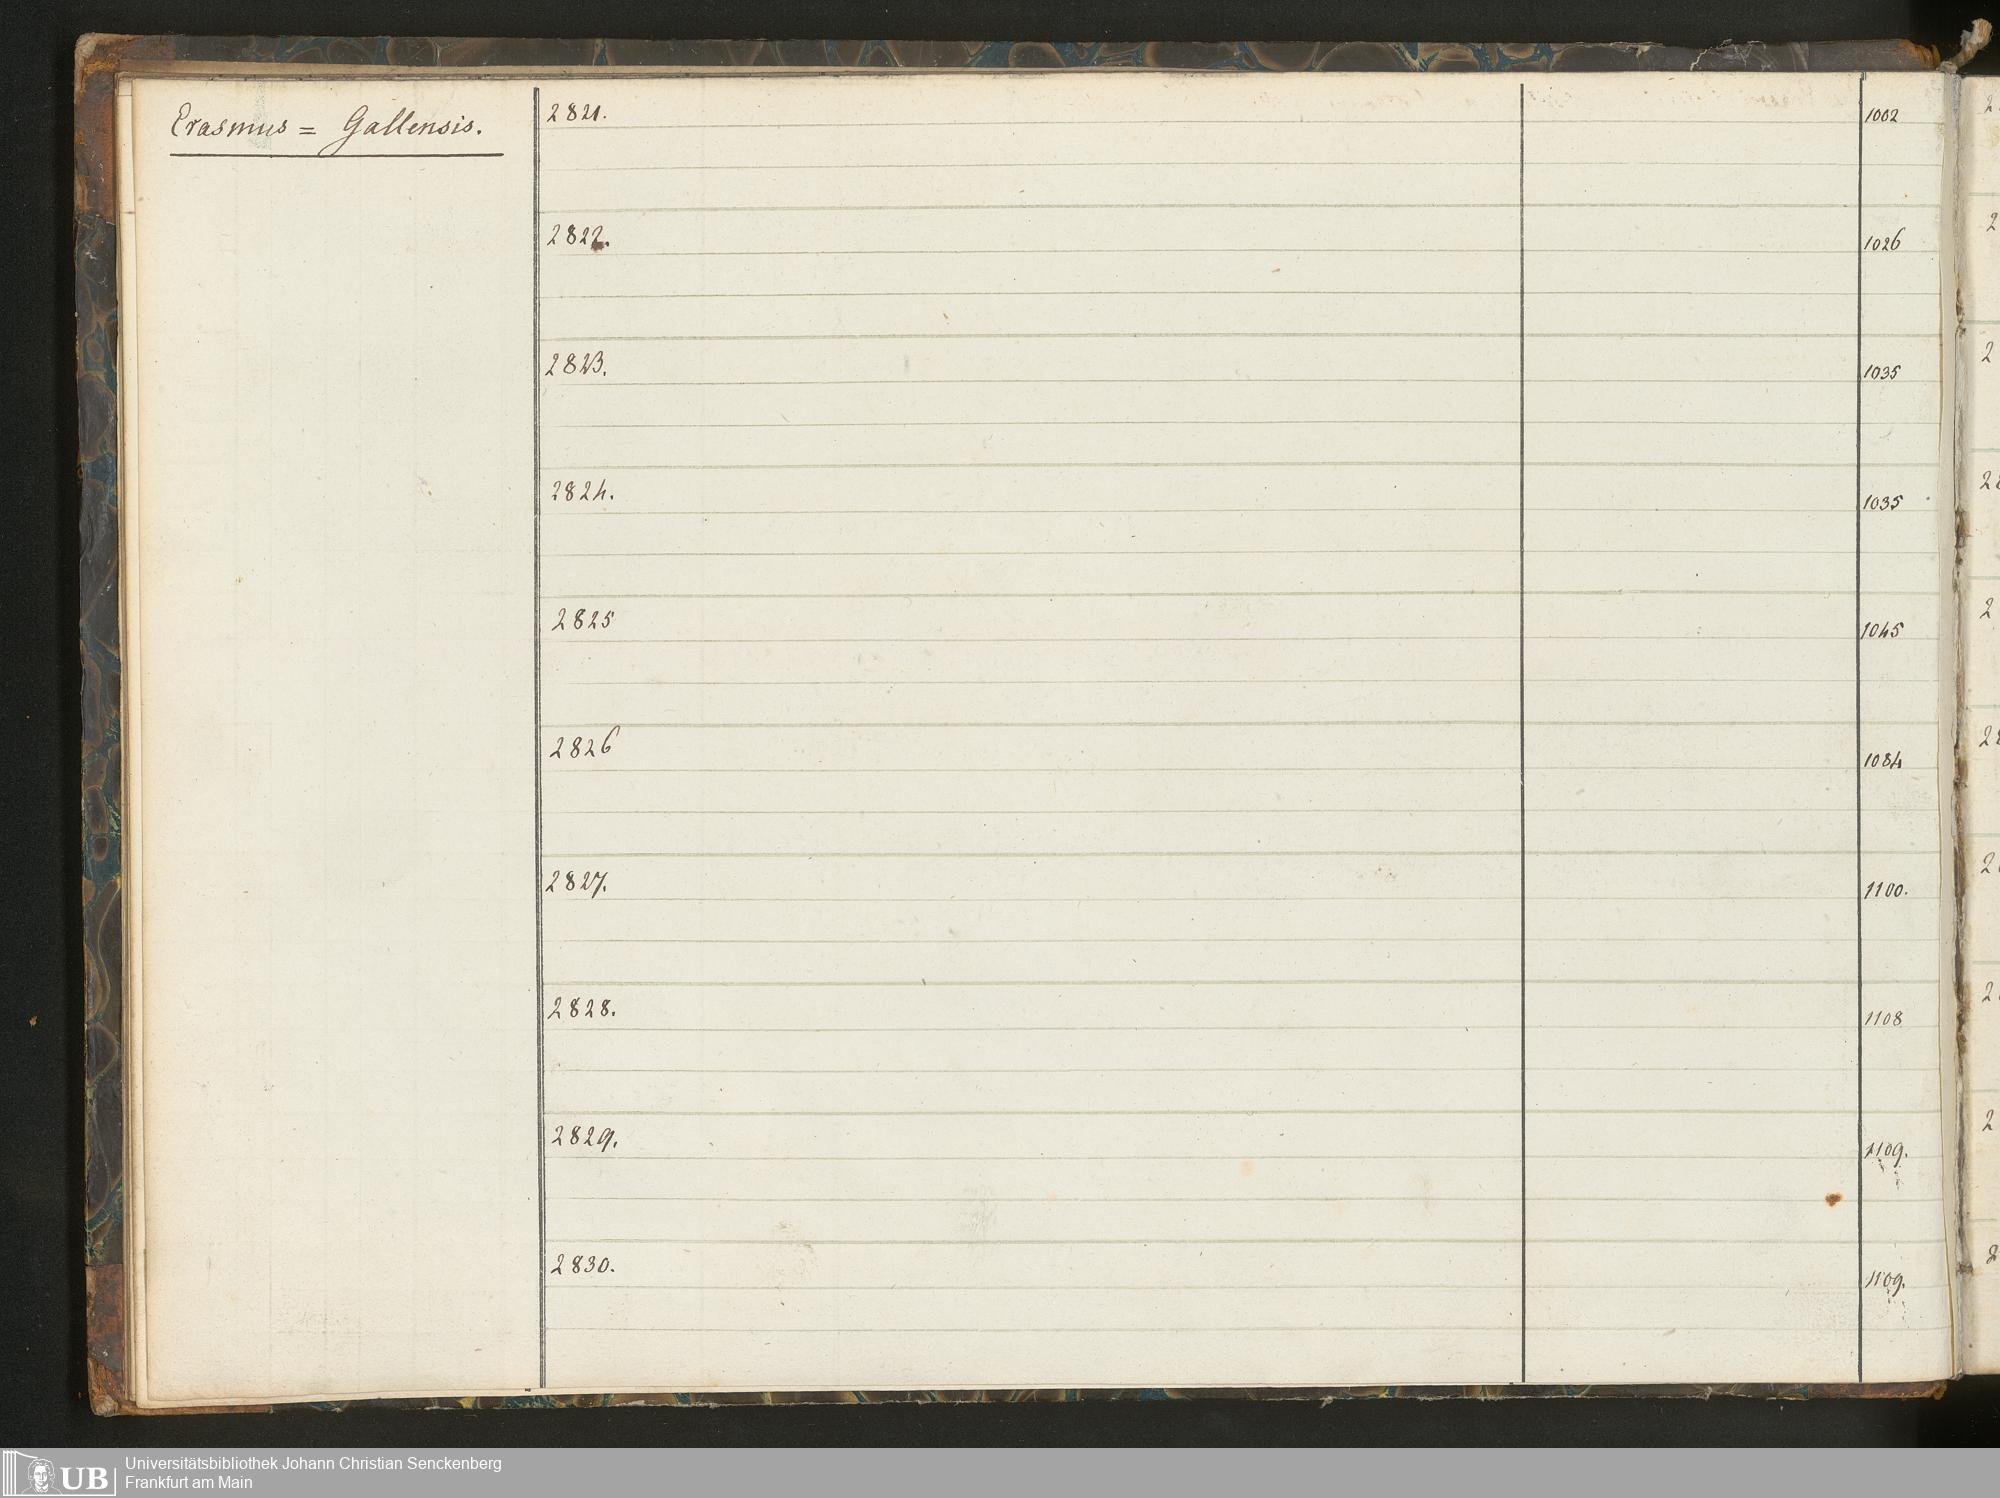 Erasmus = Gallensis.
2821.
1002
2822.
1026
2823.
1035
2824.
1035
2825
1045
2826
1084
2827.
1100.
2828.
1108
2829.
1109.
2830.
1109.
UB
Universitätsbibliothek Johann Christian Senckenberg
Frankfurt am Main